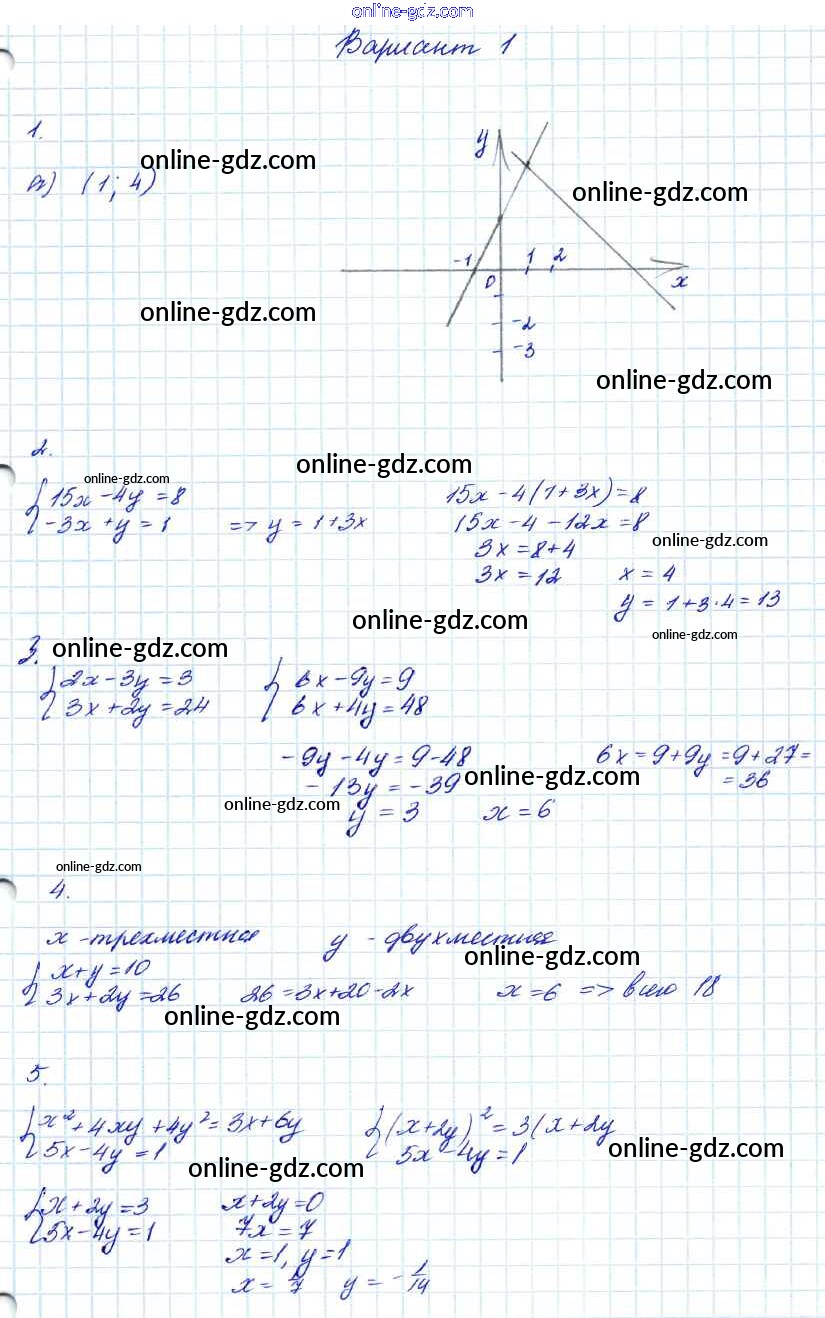 online-gdz.com
Вариант 1
1.
а) (1; 4)
online-gdz.com
y
online-gdz.com
-1
1
2
0
x
online-gdz.com
-2
-3
online-gdz.com
2.
online-gdz.com
online-gdz.com
15x - 4y = 8
-3x + y = 1 => y = 1 + 3x
15x - 4(1 + 3x) = 8
15x - 4 - 12x = 8
online-gdz.com
3x = 8 + 4
3x = 12 x = 4
y = 1 + 3 · 4 = 13
online-gdz.com
online-gdz.com
3. online-gdz.com
2x - 3y = 3
3x + 2y = 24
6x - 9y = 9
6x + 4y = 48
-9y - 4y = 9 - 48
-13y = -39
online-gdz.com
y = 3 x = 6
6x = 9 + 9y = 9 + 27 =
= 36
online-gdz.com
online-gdz.com
4.
x - трехместная y - двухместная
online-gdz.com
x + y = 10
3x + 2y = 26 26 = 3x + 20 - 2x x = 6 => всего 18
online-gdz.com
5.
x² + 4xy + 4y² = 3x + 6y
5x - 4y = 1
(x + 2y)² = 3(x + 2y
5x - 4y = 1
online-gdz.com
online-gdz.com
x + 2y = 3 x + 2y = 0
5x - 4y = 1 7x = 7
x = 1, y = 1
x = 1/7 y = -1/14